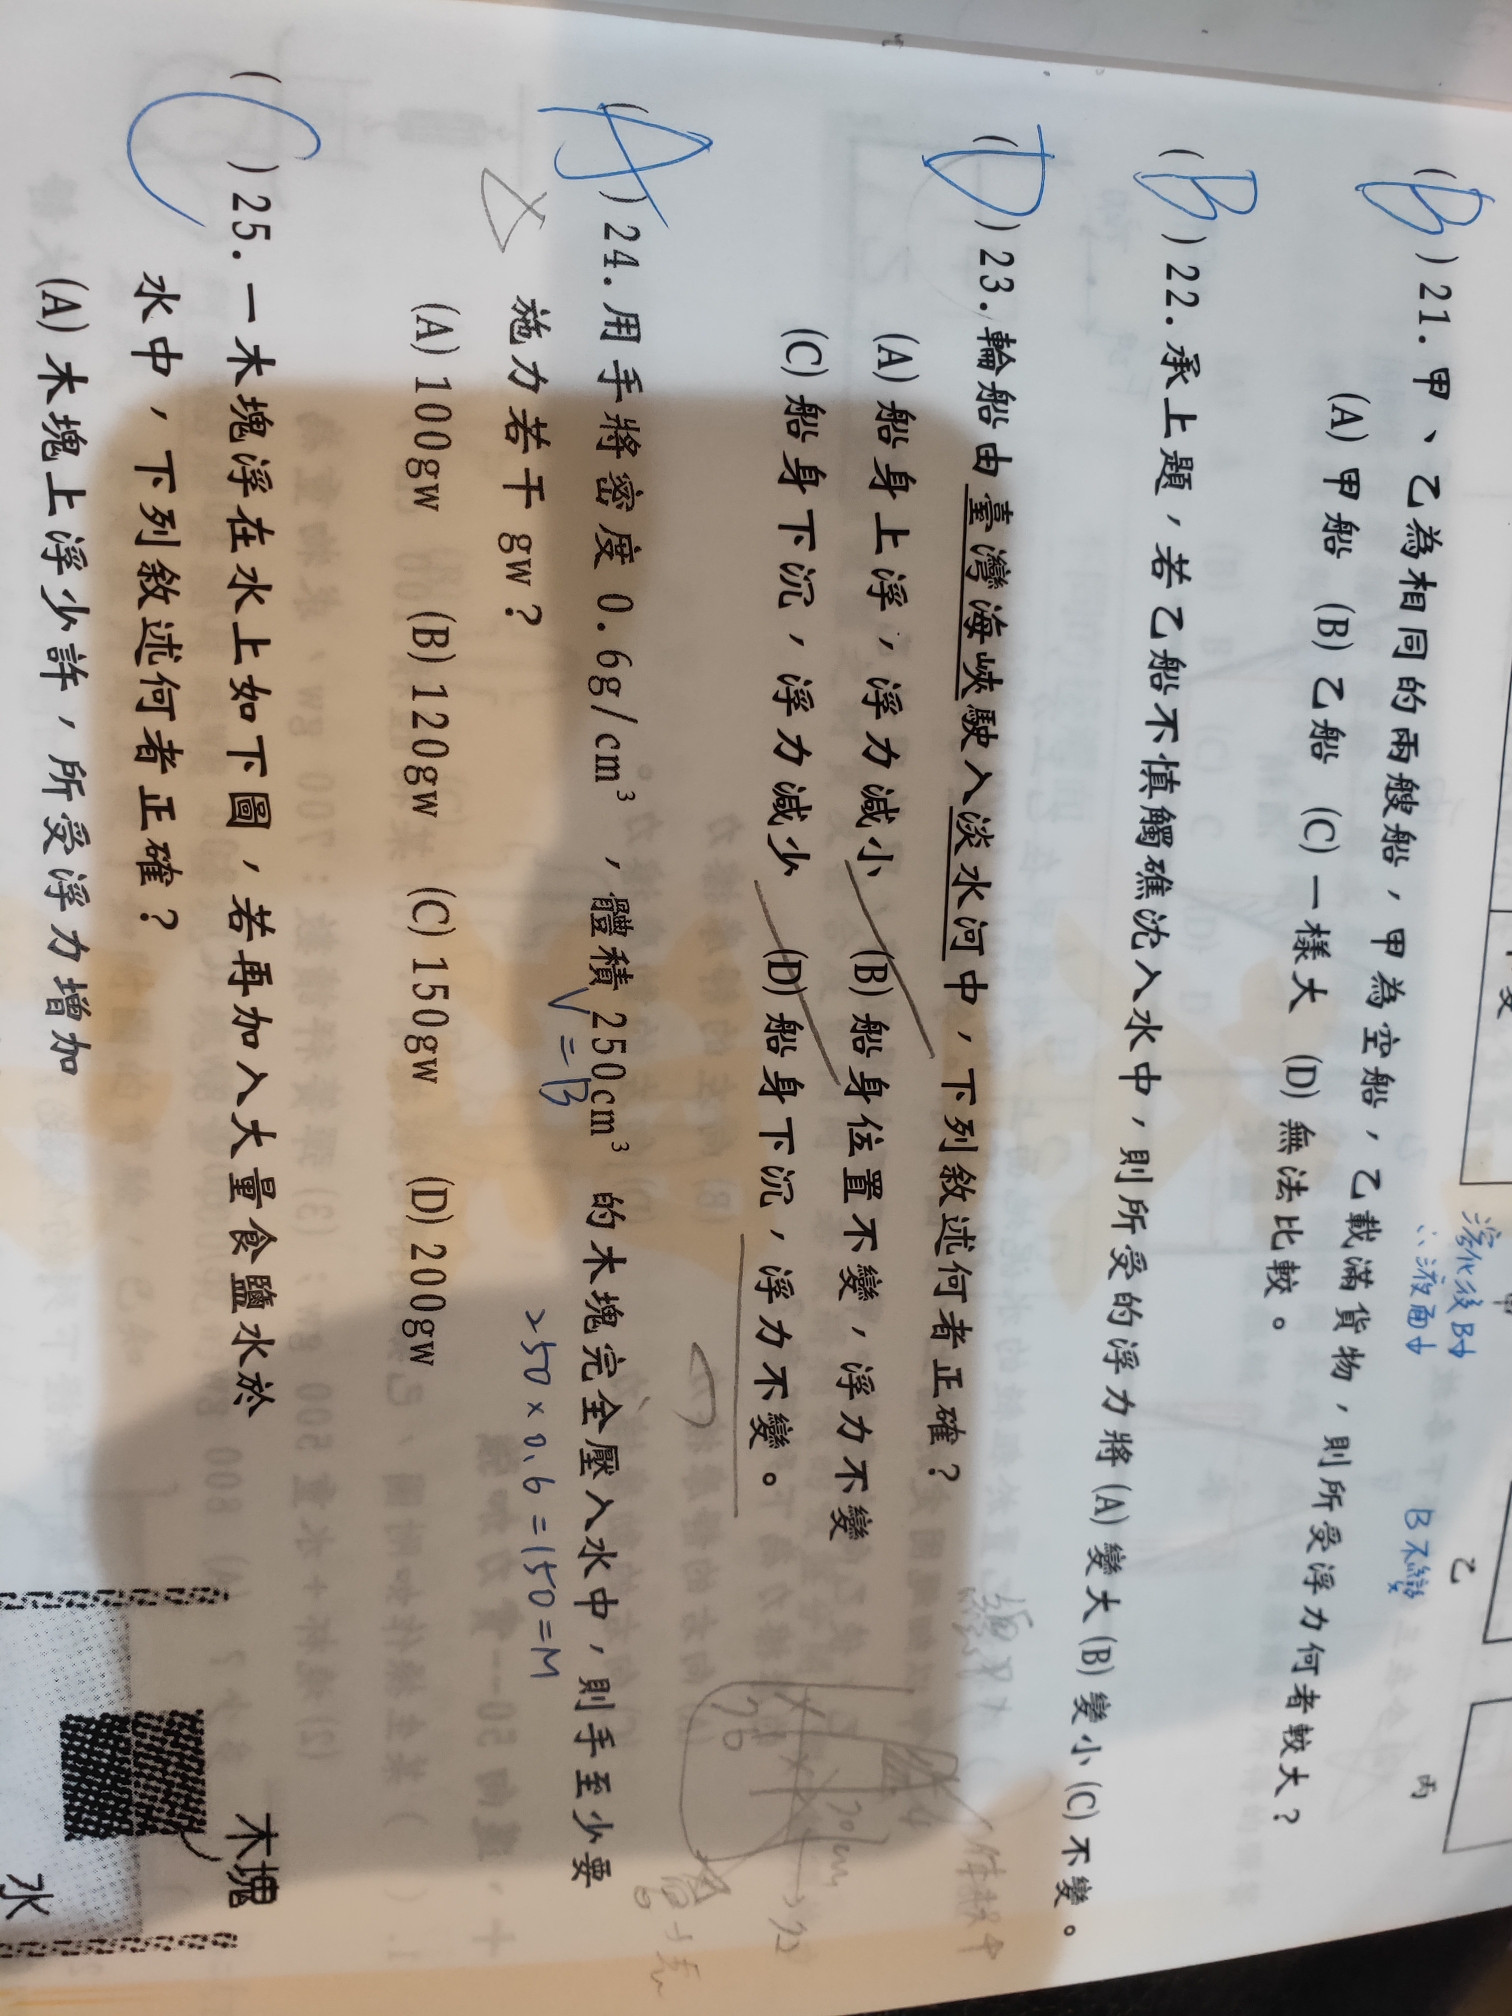 溶化後B↓
∴液面↓
B不變
乙
丙
(B)21.甲、乙為相同的兩艘船，甲為空船，乙載滿貨物，則所受浮力何者較大？
(A)甲船 (B)乙船 (C)一樣大 (D)無法比較。
(B)22.承上題，若乙船不慎觸礁沈入水中，則所受的浮力將(A)變大(B)變小(C)不變。
(D)23.輪船由臺灣海峽駛入淡水河中，下列敘述何者正確？
(A)船身上浮，浮力減小 (B)船身位置不變，浮力不變
(C)船身下沉，浮力減少 (D)船身下沉，浮力不變。
(A)24.用手將密度0.6g/cm³，體積250cm³的木塊完全壓入水中，則手至少要
V=B
施力若干gw？
250×0.6=150=M
(A)100gw (B)120gw (C)150gw (D)200gw
(C)25.一木塊浮在水上如下圖，若再加入大量食鹽水於
水中，下列敘述何者正確？
(A)木塊上浮少許，所受浮力增加
木塊
水